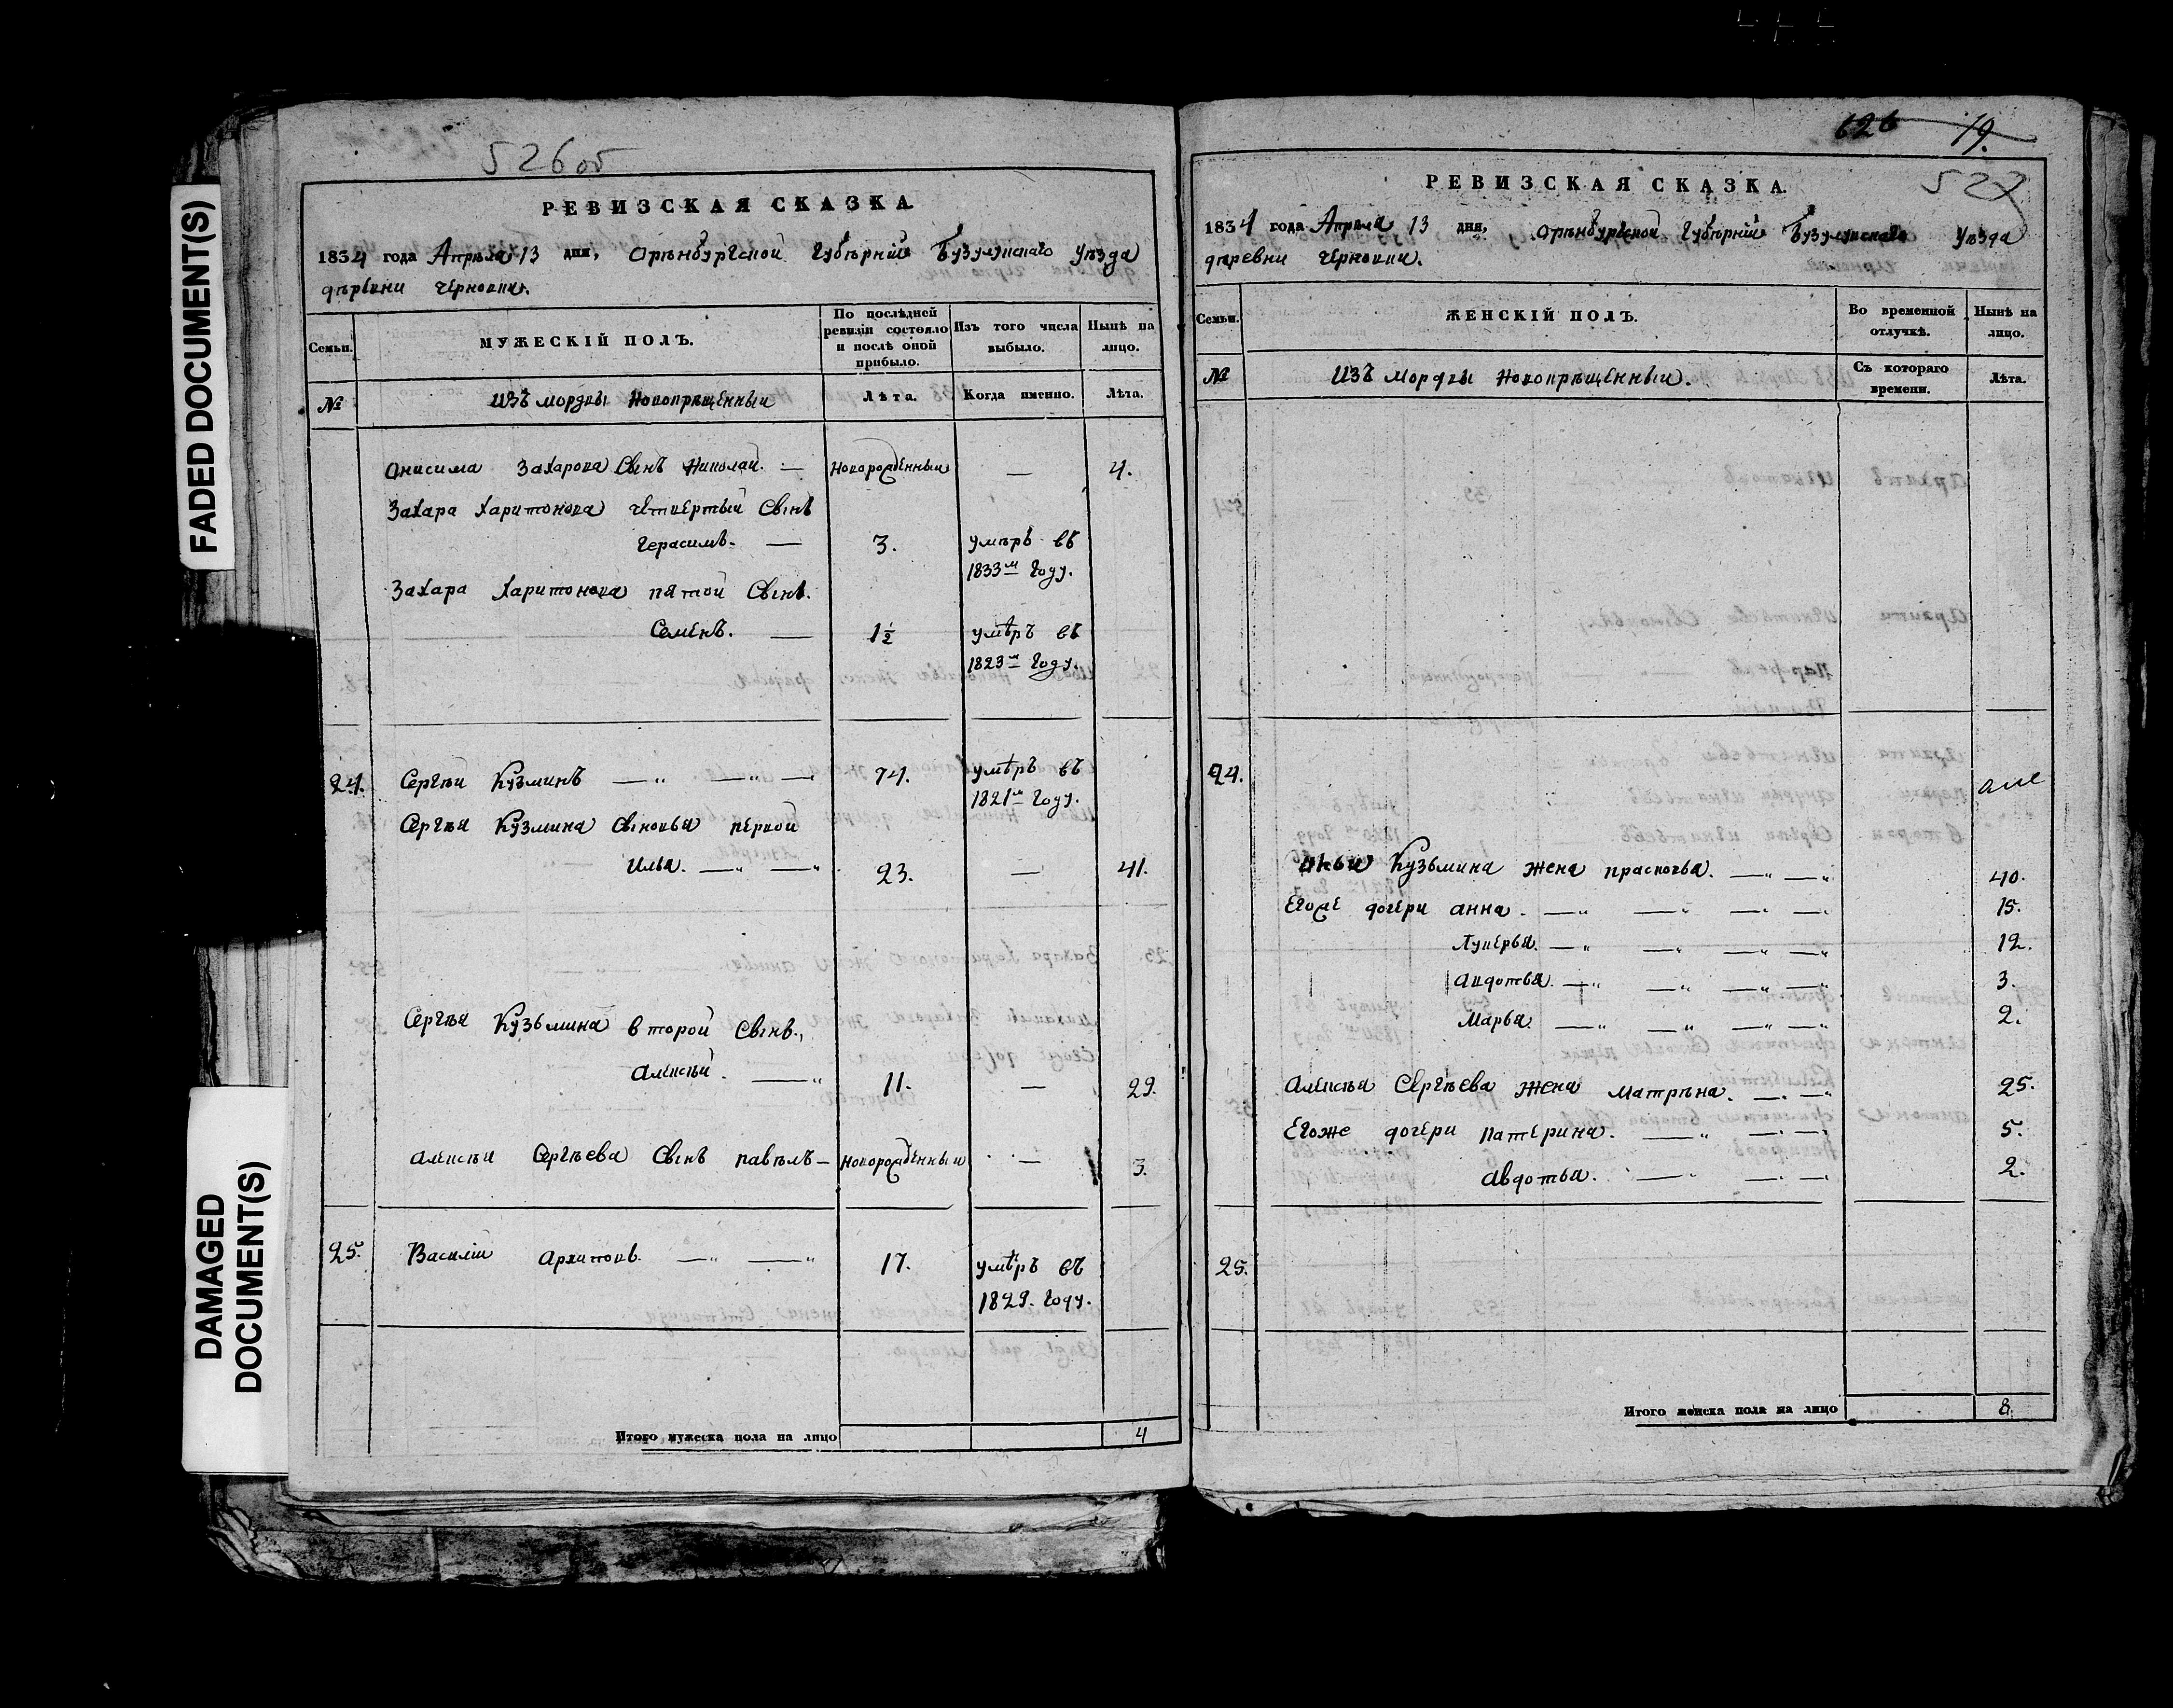 FADED DOCUMENT(S)
DAMAGED
DOCUMENT(S)
526об
РЕВИЗСКАЯ СКАЗКА
1834 года Апрѣля 13 дня, Орѣнбургской Губѣрніи Бузулукскаго Уѣзда
дѣревни Черновки.
Семьи.
МУЖЕСКІЙ ПОЛЪ.
По послѣдней
ревизіи состояло
и послѣ оной
прибыло.
Изъ того числа
выбыло.
Нынѣ на
лицо.
№
Изъ мордвы Новопрещенныи
Лѣта.
Когда именно.
Лѣта.
Анисима Захарова Сынъ Николай. — Новорожденныи — 4.
Захара Харитонова четвертый Сынъ
Герасимъ. — 3. умѣръ въ
1833м Году.
Захара Харитонова пятой Сынъ.
Семенъ. — 1½ умѣръ въ
1823м Году.
24. Сергѣй Кузминъ —„ —„— 74. умѣръ въ
1821м Году.
Сергѣя Кузмина Сыновья первой
Илья. —„ —„ 23. — 41.
Сергѣя Кузьмина второй Сынъ.,
Алексѣй. —„ 11. — 29.
Алексѣя Сергѣева Сынъ павѣлъ — Новорожденныи — 3.
25. Василіи Архиповъ. —„ —„ 17. умѣръ въ
1829. Году.
Итого мужеска пола на лицо 4
626 19.
527
РЕВИЗСКАЯ СКАЗКА.
1834 года Апрѣля 13 дня, Орѣнбургской Губѣрніи Бузулукскаго Уѣзда
дѣревни Черновки.
Семьи.
ЖЕНСКІЙ ПОЛЪ.
Во временной
отлучкѣ.
Нынѣ на
лицо.
№
Изъ Мордвы Новопрѣщенныи.
Съ котораго
времени.
Лѣта.
24.
Ильи Кузьмина жена прасковья. —„ —„ 40.
Егоже дочери анна. —„ —„ —„ —„ 15.
Лукерья. —„ —„ —„ —„ 12.
Авдотья. —„ —„ —„ —„ 3.
Марья. —„ —„ —„ —„ 2.
Алексѣя Сергѣева жена матрѣна. —. —„ 25.
Егоже дочери катерина. —„ —. —„ 5.
авдотья. —„ —„ —„ 2.
25.
Итого женска пола на лицо 8.